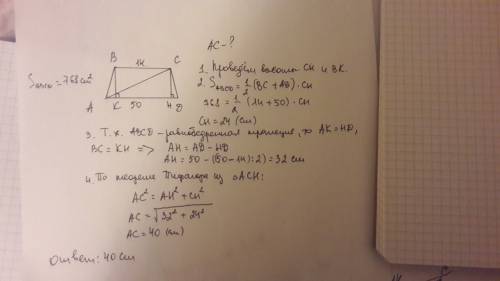 AC - ?
B 14 C
S_ABCD = 768 см²
A K 50 H D
1. Проведём высоты CH и BK.
2. S_ABCD = 1/2 (BC + AD) · CH
768 = 1/2 (14 + 50) · CH
CH = 24 (см)
3. Т.к. ABCD - равнобедренная трапеция, то AK = HD,
BC = KH => AH = AD - HD
AH = 50 - (50 - 14) : 2) = 32 см
4. По теореме Пифагора из △ACH:
AC² = AH² + CH²
AC = √32² + 24²
AC = 40 (см)
Ответ: 40 см
14 C